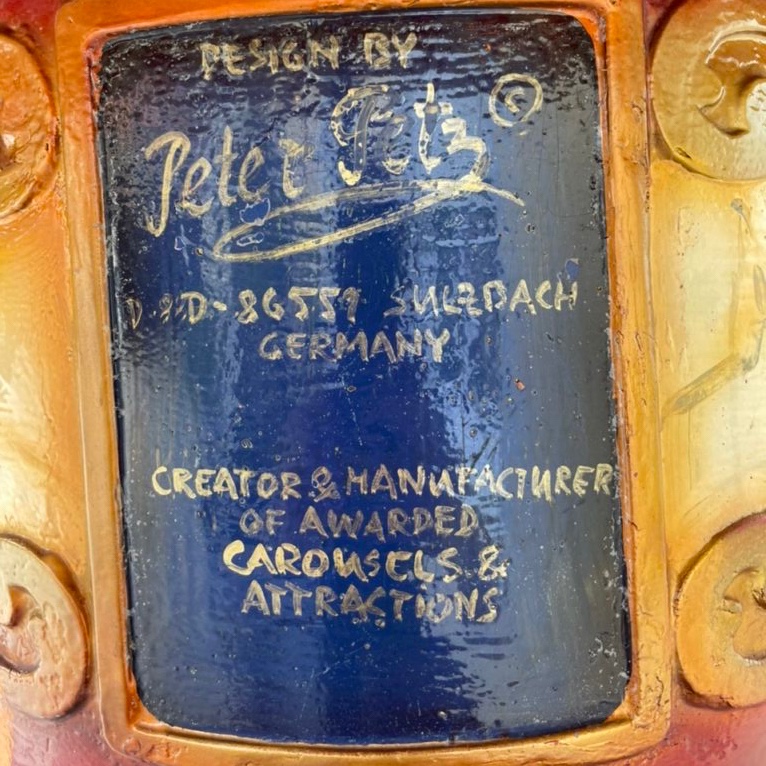 DESIGN BY
Peter Petz ©
D-86559 SULZBACH
GERMANY
CREATOR & MANUFACTURER
OF AWARDED
CAROUSELS &
ATTRACTIONS